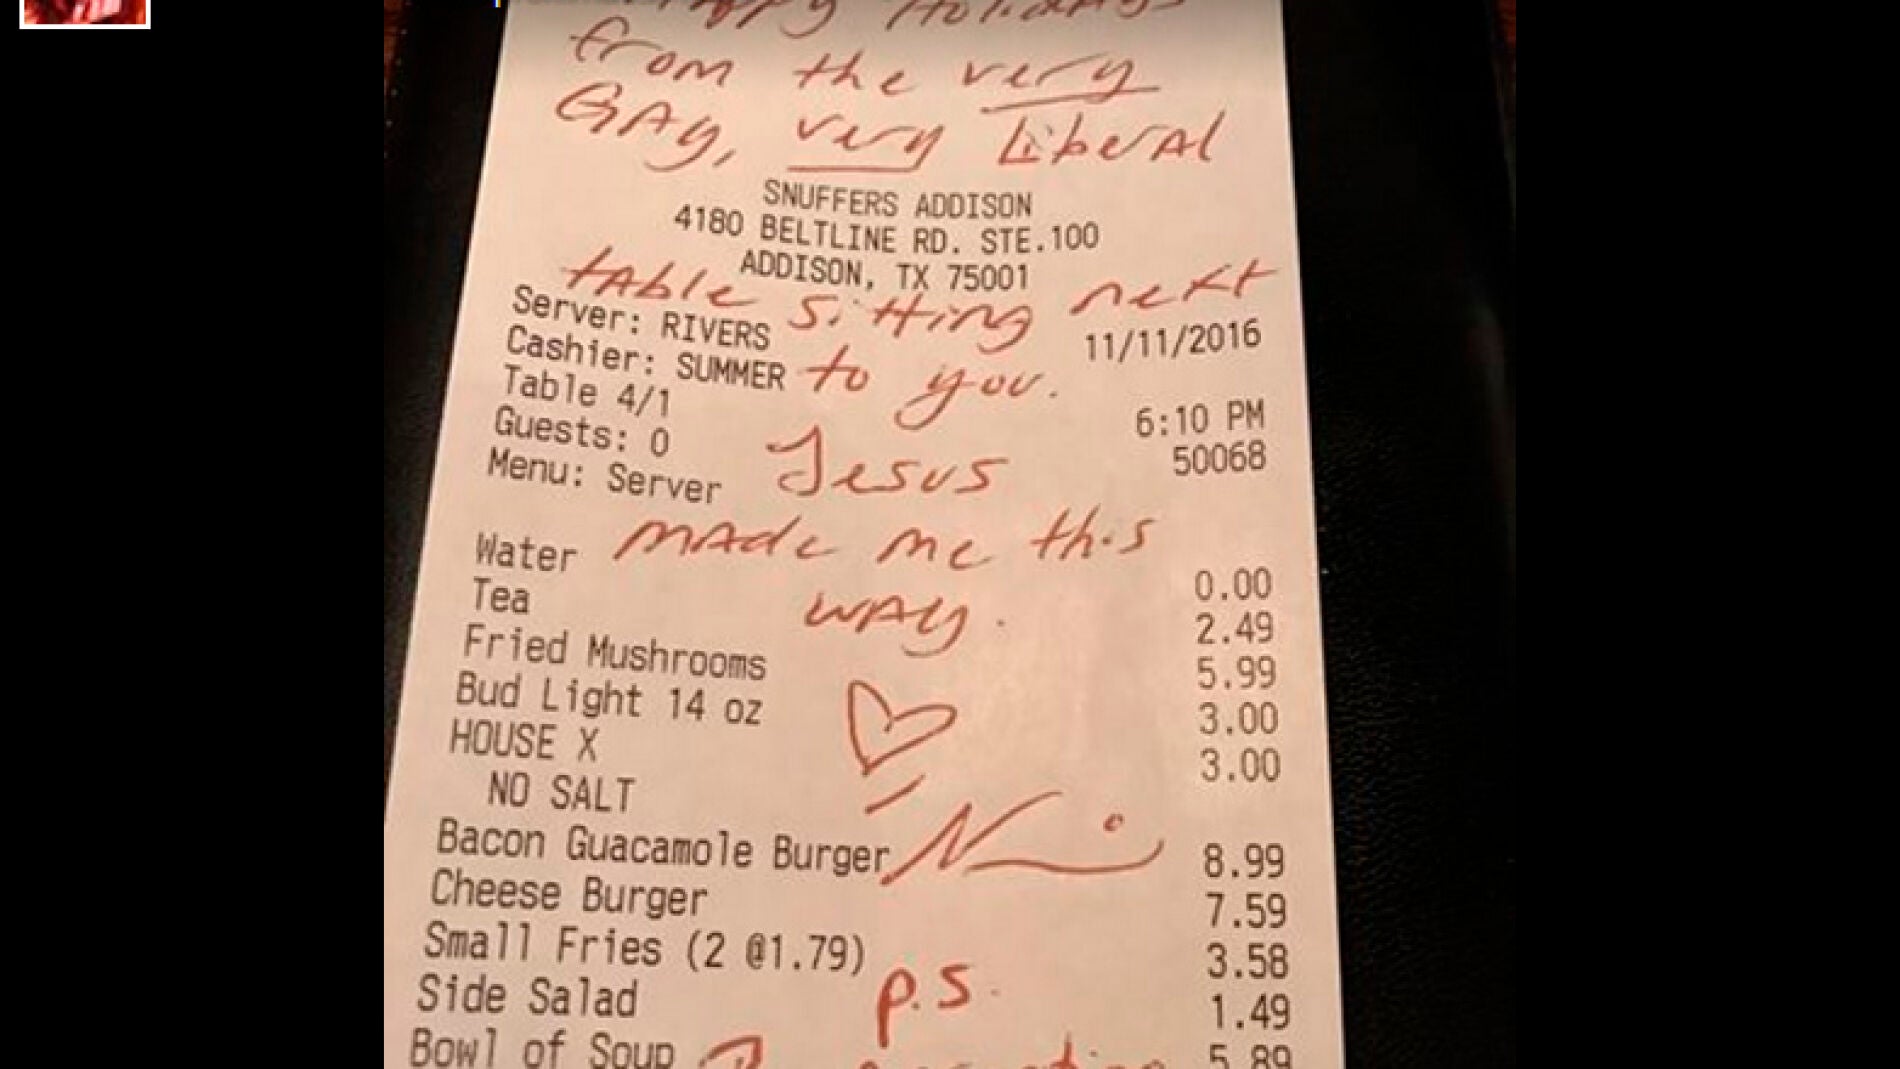 Happy Holidays
from the very
GAy, very LiberAl
SNUFFERS ADDISON
4180 BELTLINE RD. STE.100
ADDISON, TX 75001
tAble sitting next
Server: RIVERS 11/11/2016
Cashier: SUMMER to you.
Table 4/1 6:10 PM
Guests: 0 50068
Jesus
Menu: Server
mAde me this
Water 0.00
Tea 2.49
wAy.
Fried Mushrooms 5.99
Bud Light 14 oz 3.00
HOUSE X 3.00
NO SALT
Bacon Guacamole Burger 8.99
Cheese Burger 7.59
Small Fries (2 @1.79) 3.58
p.s.
Side Salad 1.49
Bowl of Soup 5.89